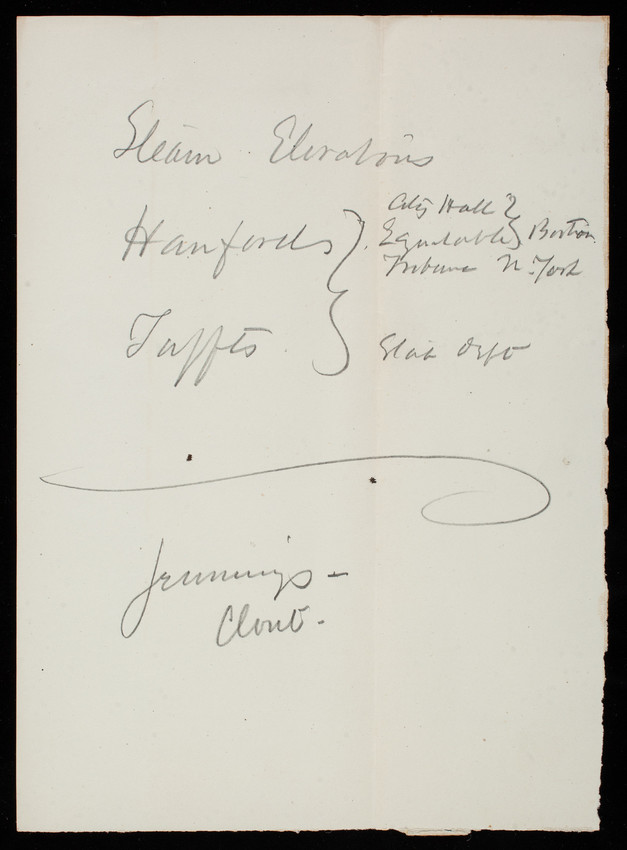 Steam Elevators
Hanfords
City Hall
Equitable Boston
Tribune N. York
Tuffts
State Dept
Jennings -
Clout.